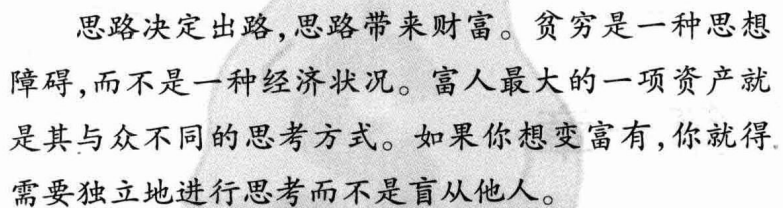 思路决定出路,思路带来财富。贫穷是一种思想
障碍,而不是一种经济状况。富人最大的一项资产就
是其与众不同的思考方式。如果你想变富有,你就得
需要独立地进行思考而不是盲从他人。